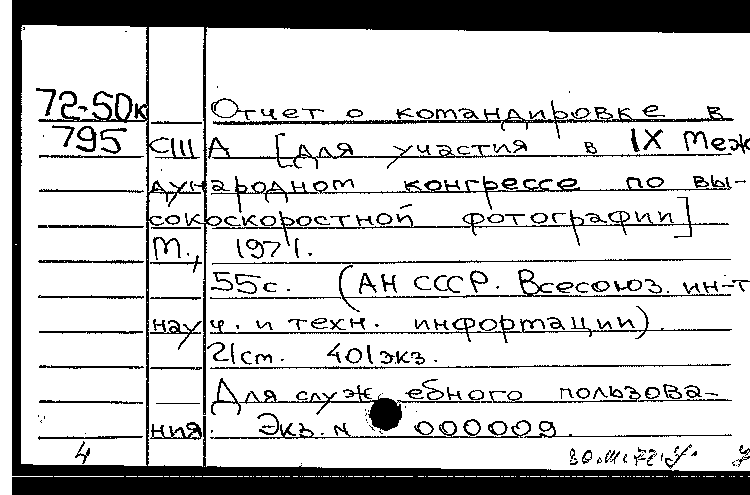 72-50к Отчет о командировке в
795 США [для участия в IX Меж
дународном конгрессе по вы-
сокоскоростной фотографии]
М., 1971.
55с. (АН СССР. Всесоюз. ин-т
науч. и техн. информации).
21см. 401экз.
Для служебного пользова-
ния. Экз. N 000009.
4